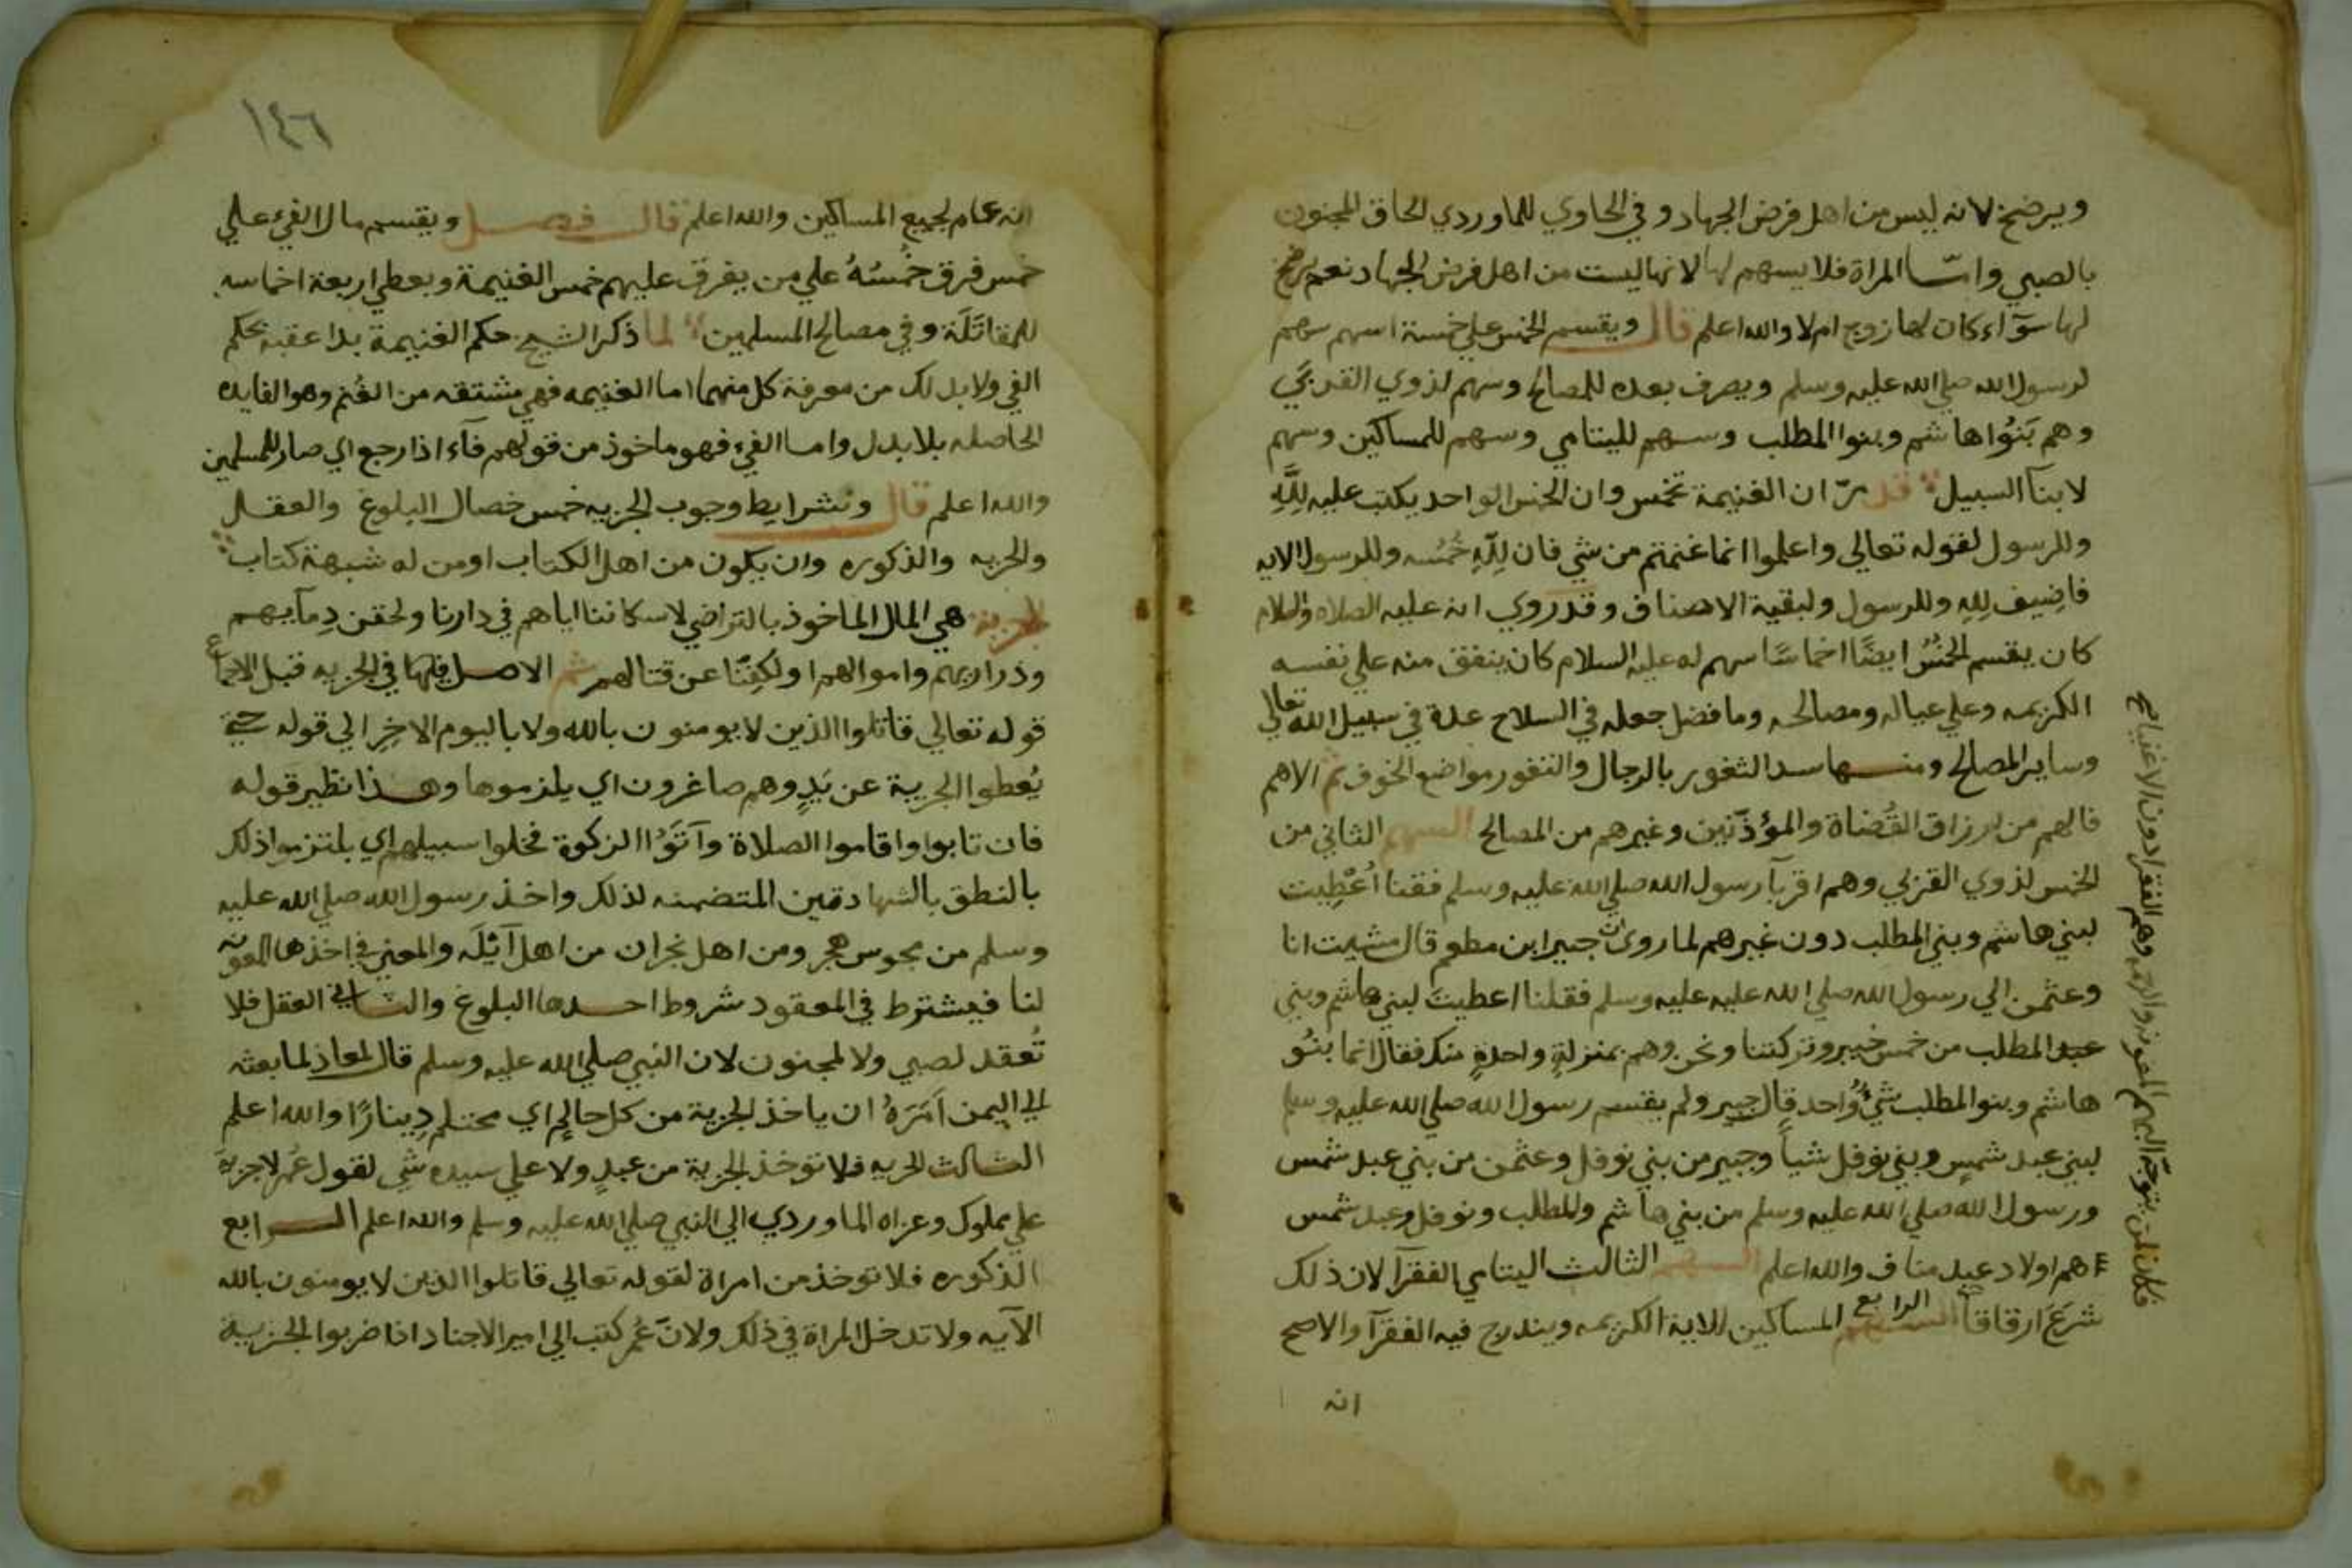 ويرضخ لانه ليس من اهل فرض الجهاد وفي الحاوي للماوردي الحاق المجنون
بالصبي وامّا المراة فلا يسهم لها لانها ليست من اهل فرض الجهاد نعم يرضخ
لها سوآء كان لها زوج ام لا والله اعلم قال ويقسم الخمس علي خمسة اسهم سهم
لرسول الله صلي الله عليه وسلم ويصرف بعده للمصالح وسهم لذوي القربي
وهم بَنُوا هاشم وبنوا المطلب وسهم لليتامي وسهم للمساكين وسهم
لابنآ السبيل قد مرّ ان الغنيمة تخمس وان الخمس الواحد يكتب عليه لِلَّهِ
وللرسول لقوله تعالي واعلموا انما غنمتم من شي فان لِلَّهِ خُمُسه وللرسول الايه
فاضِيف لِلهِ وللرسول ولبقية الاصناف وقد روي انه عليه الصلاه والسلام
كان يقسم الخمُسُ ايضًا اخماسًا سهم له عليه السلام كان ينفق منه علي نفسه
الكريمه وعلي عياله ومصالحه وما فضل جعله في السلاح عدة في سبيل الله تعالي
وساير المصالح ومنها سد الثغور بالرجال والثغور مواضع الخوف ثم الاهم
فالهم من ارزاق القُضاة والمؤذنين وغيرهم من المصالح السهم الثاني من
الخمس لذوي القربي وهم اقربآ رسول الله صلي الله عليه وسلم فقنا اُعْطِيت
لبني هاشم وبني المطلب دون غيرهم لما روي ان جبير ابن مطعم قال مشيت انا
وعثمن الي رسول الله صلي الله عليه عليه وسلم فقلنا اعطيتَ لبني هاشم وبني
عبد المطلب من خمس خيبر وتركتنا ونحن وهم بمنزلةٍ واحدةٍ منك فقال انما بنُو
هاشم وبنو المطلب شيءٌ وُاحد قال جبير ولم يقسم رسول الله صلي الله عليه وسلم
لبني عبد شمسٍ وبني نوفل شياً وجبير من بني نوفل وعثمن من بني عبد شمس
ورسول الله صلي الله عليه وسلم من بني هاشم والمطلب ونوفل وعبد شمس
هم اولاد عبد مناف والله اعلم السهم الثالث اليتامي الفقرآ لان ذلك
شرعَ ارقاقاً السهم الرابع المساكين للاية الكريمه ويندرج فيه الفقرآ والاصح
انه
انه عام لجميع المساكين والله اعلم قال فصل ويقسم مال الفيء علي
خمس فرق خُمسُهُ علي من يفرق عليهم خمس الغنيمة ويعطي اربعة اخماسه
للمقاتَلَة وفي مصالح المسلمين لما ذكر الشيخ حكم الغنيمة بدا عقبه بحكم
الفي ولا بد لك من معرفة كل منهما اما الغنيمه فهي مشتقه من الغُنم وهو الفايده
الحاصله بلا بدل واما الفيء فهو ماخوذ من قولهم فآء اذا رجع اي صار للمسلمين
والله اعلم قال وشرايط وجوب الجزيه خمس خصال البلوغ والعقل
والحريه والذكوره وان يكون من اهل الكتاب او من له شبهة كتاب
الجزية هي المال الماخوذ بالتراضي لاسكاننا اياهم في دارنا ولحقن دِمآيهم
وذراريهم واموالهم او لكِفنَّا عن قتالهم ثم الاصل فيها في الجزيه قبل الاجماع
قوله تعالي قاتلوا الذين لا يومنون بالله ولا باليوم الاخِر الي قوله حتي
يُعطوا الجزية عن يَدٍ وهم صاغرون اي يلزموها وهذا نظير قوله
فان تابوا واقاموا الصلاة وآتَوُا الزكوة فخلوا سبيلهم اي يلتزموا ذلك
بالنطق بالشهادتين المتضمنه لذلك واخذ رسول الله صلي الله عليه
وسلم من مجوس هجر ومن اهل نجران من اهل آيْلَه والمعني في اخذها المعونه
لنا فيشترط في المعقود شروط احدها البلوغ والثاني العقل فلا
تُعقد لصبي ولا لمجنون لان النبي صلي الله عليه وسلم قال لمعاذ لما بعثه
الي اليمن اَمَرَهُ ان ياخذ الجزية من كل حالمٍ اي محتلم دِينارًا والله اعلم
الثالث الحريه فلا توخذ الجزية من عبدٍ ولا علي سيده شي لقول عُمر لا جزية
علي مملوك وعزاه الماوردي الي النبي صلي الله عليه وسلم والله اعلم الرابع
الذكوره فلا توخذ من امراة لقوله تعالي قاتلوا الذين لا يومنون بالله
الآيه ولا تدخل المراة في ذلك ولانَّ عُمر كتب الي امير الاجناد ان اضربوا الجزية
١٤٦
فكان لمن يتوجّه اليهم المعونه والرحمه وهم الفقرا دون الاغنيا صح